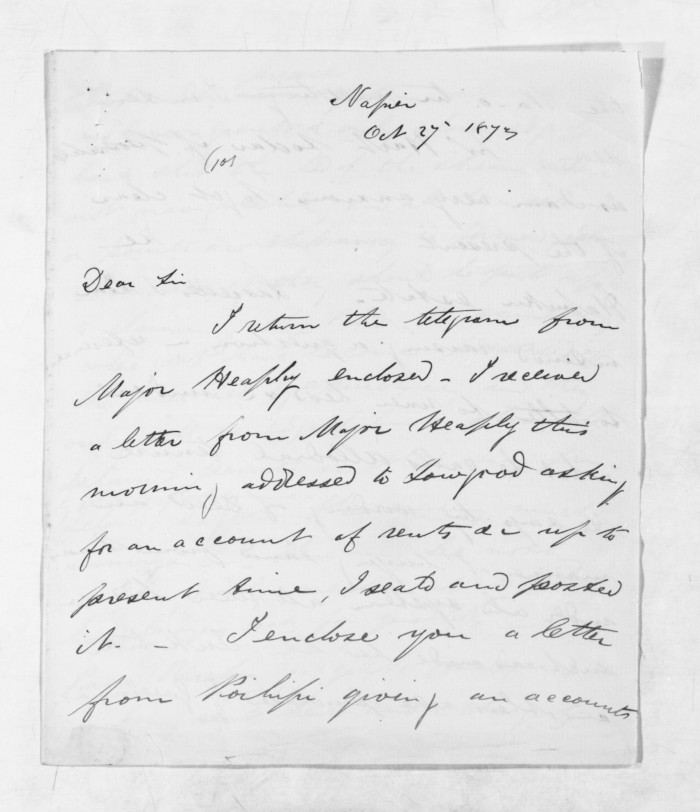 Napier
Oct 27th 1873
Dear Sir
I return the telegram from
Major Heaphy enclosed - I received
a letter from Major Heaphy this
morning addressed to Lowgood asking
for an account of rents &c up to
present time, I seald and posted
it. - I enclose you a letter
from Poihipi giving an accounts